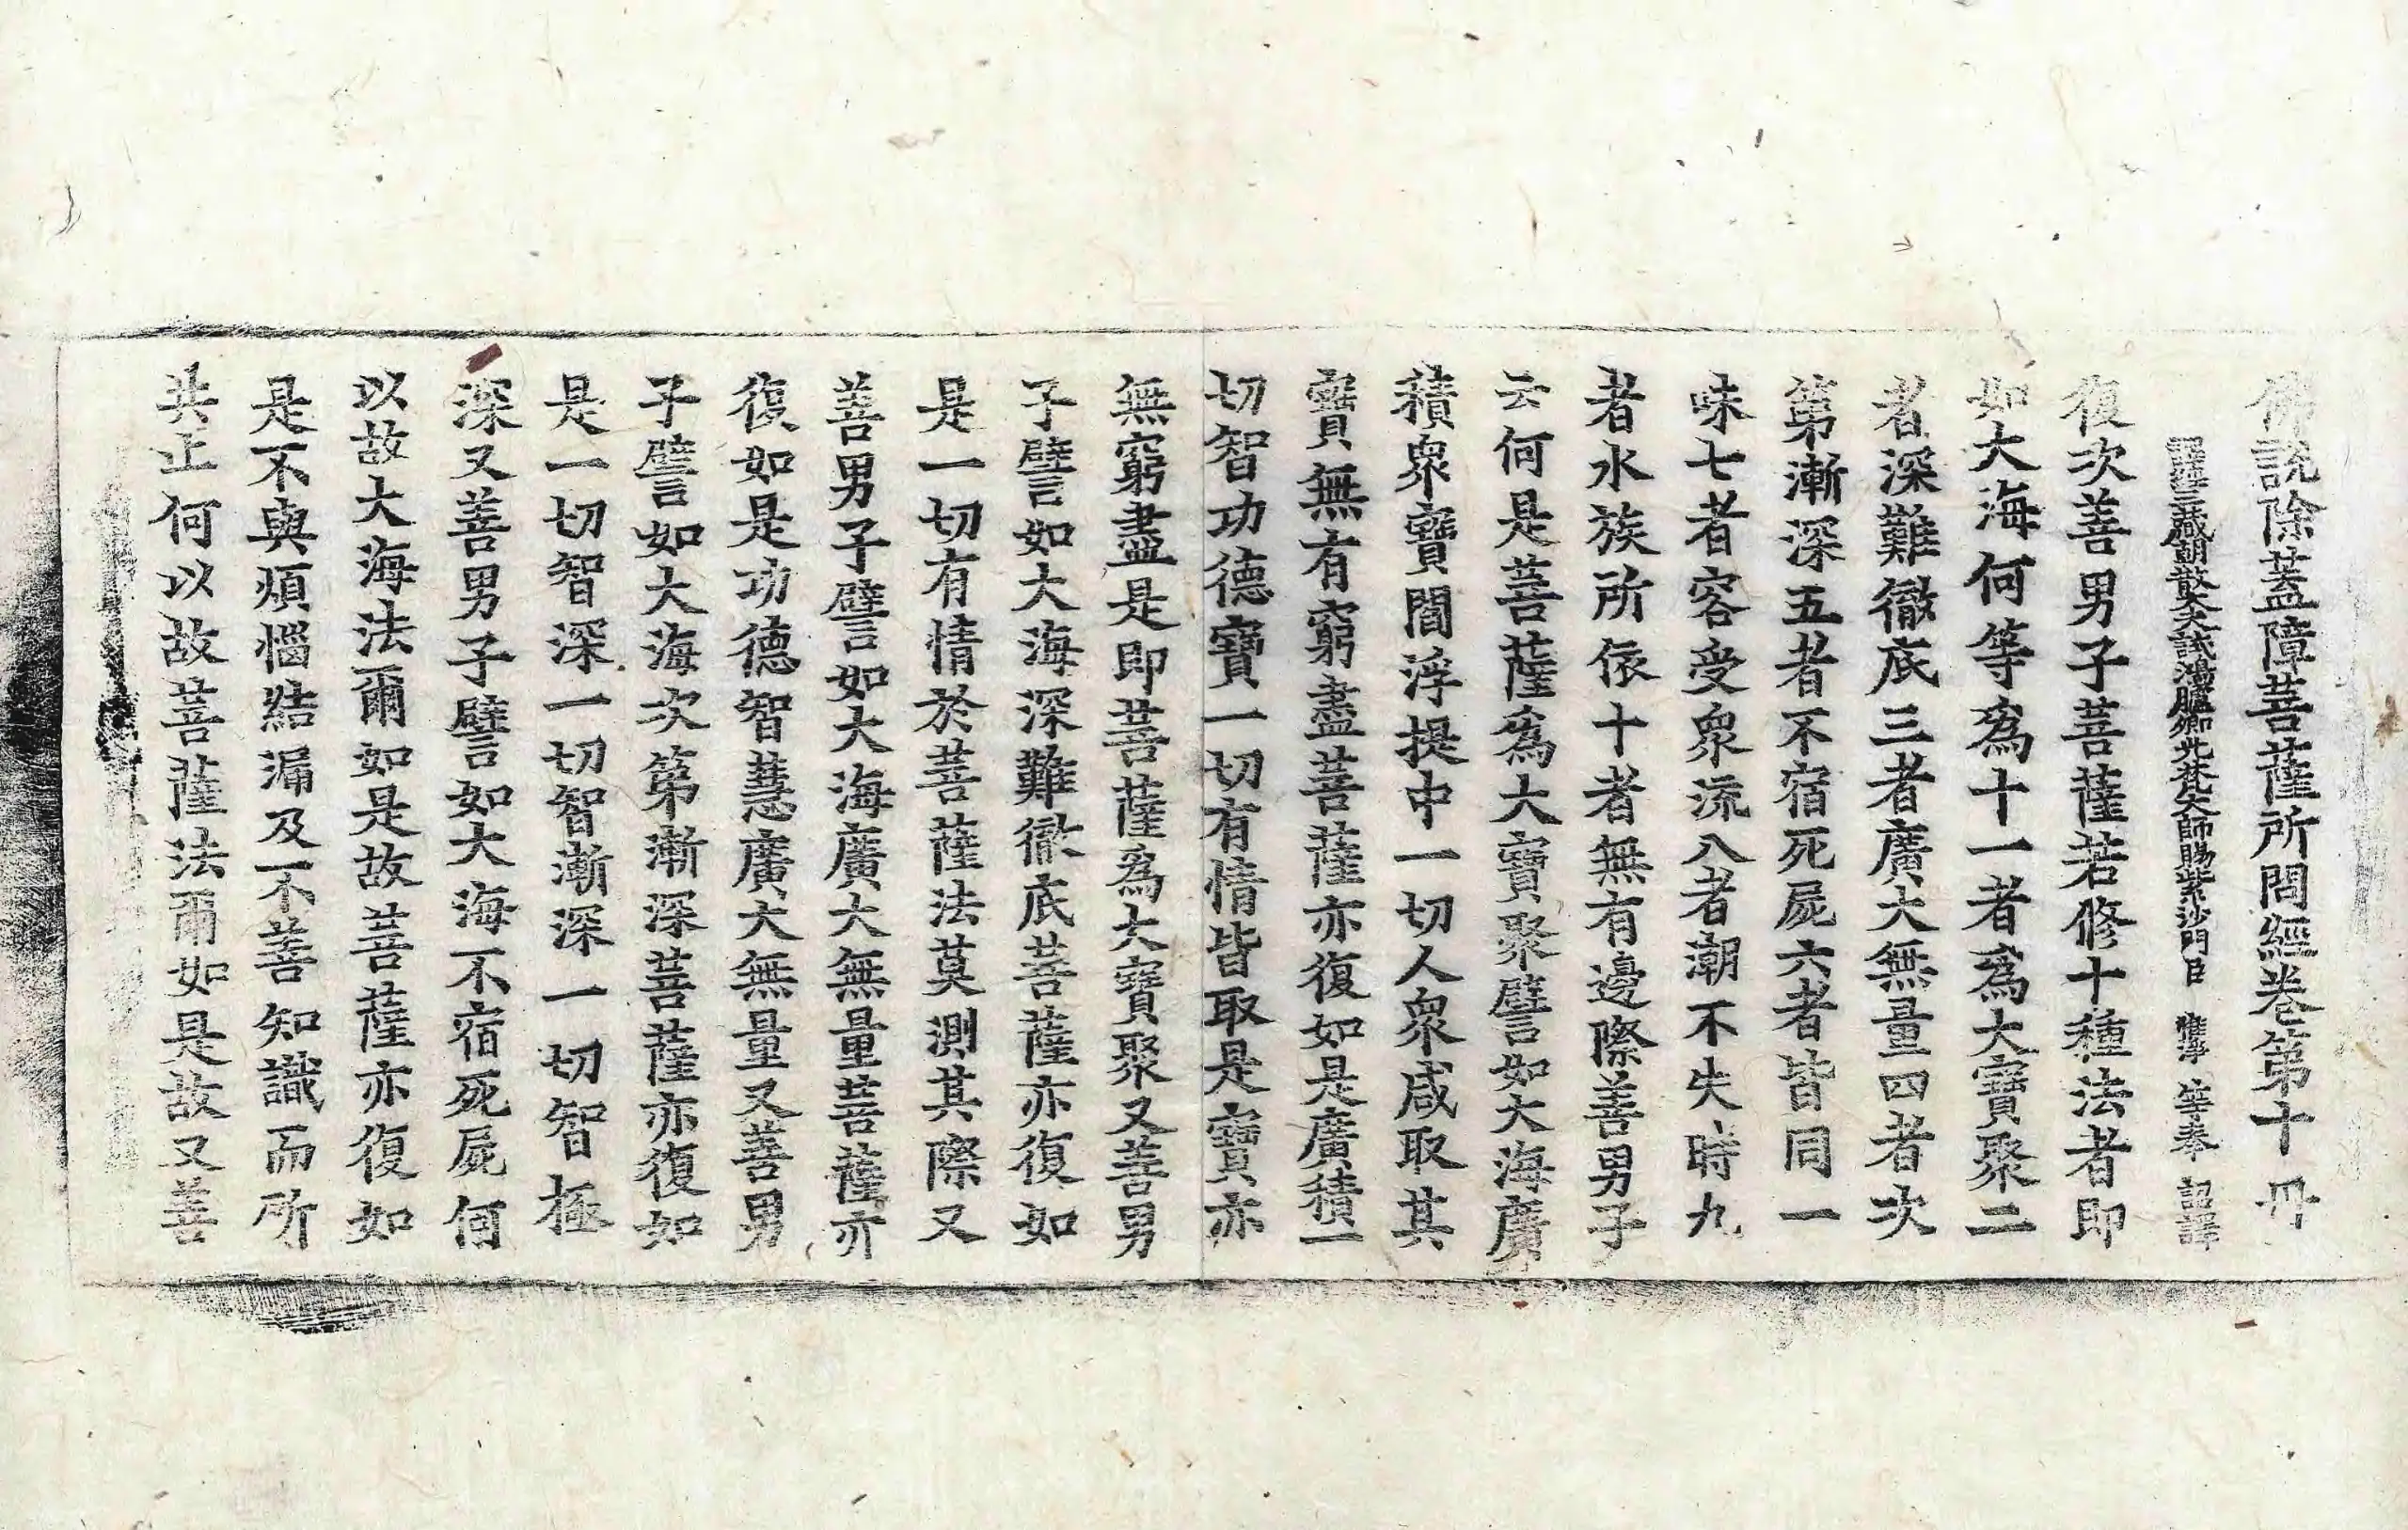 佛說除蓋障菩薩所問經卷第十 丹
譯經三藏朝散大夫試鴻臚卿光梵大師賜紫沙門臣 惟淨 等奉 詔譯
復次善男子菩薩若修十種法者即
如大海何等爲十一者爲大寶聚二
者深難徹底三者廣大無量四者次
第漸深五者不宿死屍六者皆同一
味七者容受衆流八者潮不失時九
者水族所依十者無有邊際善男子
云何是菩薩爲大寶聚譬如大海廣
積衆寶閻浮提中一切人衆咸取其
寶無有窮盡菩薩亦復如是廣積一
切智功德寶一切有情皆取是寶亦
無窮盡是即菩薩爲大寶聚又善男
子譬如大海深難徹底菩薩亦復如
是一切有情於菩薩法莫測其際又
善男子譬如大海廣大無量菩薩亦
復如是功德智慧廣大無量又善男
子譬如大海次第漸深菩薩亦復如
是一切智深一切智漸深一切智極
深又善男子譬如大海不宿死屍何
以故大海法爾如是故菩薩亦復如
是不與煩惱結漏及不善知識而所
共止何以故菩薩法爾如是故又善